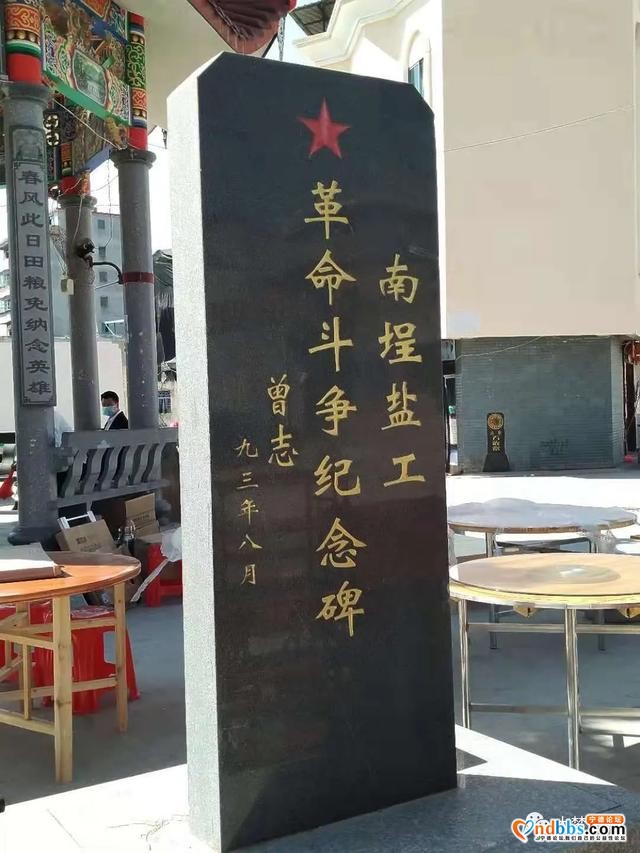 南埕盐工
革命斗争纪念碑
曾志
九三年八月
春风此日田粮免纳念英雄
宁德论坛
ndbbs.com